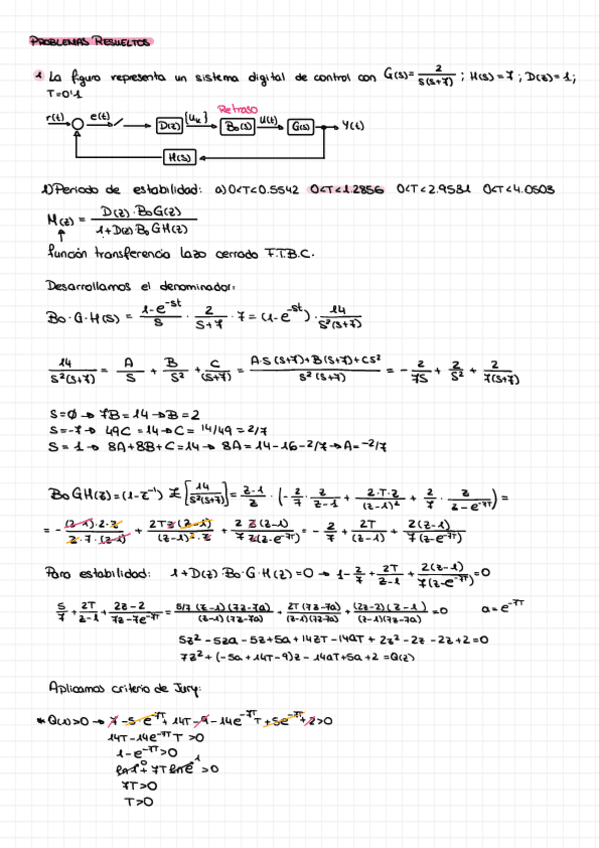 PROBLEMAS RESUELTOS
1 La figura representa un sistema digital de control con G(s)= 2/(s(s+7)) ; H(s)=7 ; D(z)=1;
T=0'1
Retraso
r(t) e(t) D(z) {Uk} Bo(s) U(t) G(s) Y(t)
H(s)
1) Periodo de estabilidad: a) 0<T<0.5542 0<T<1.2856 0<T<2.9531 0<T<4.0503
M(z) = D(z)·BoG(z) / 1+D(z)BoGH(z)
función transferencia lazo cerrado F.T.B.C.
Desarrollamos el denominador:
Bo·G·H(s) = (1-e^-st)/s · 2/(s+7) · 7 = (1-e^-st) · 14/(s²(s+7))
14/(s²(s+7)) = A/s + B/s² + C/(s+7) = (A·s(s+7)+B(s+7)+Cs²)/(s²(s+7)) = - 2/(7s) + 2/s² + 2/(7(s+7))
S=0 → 7B=14 → B=2
S=-7 → 49C=14 → C= 14/49 = 2/7
S=1 → 8A+8B+C=14 → 8A=14-16-2/7 → A=-2/7
BoGH(z)=(1-z⁻¹) Z[14/(s²(s+7))] = (z-1)/z · (-2/7 · z/(z-1) + 2·T·z/(z-1)² + 2/7 · z/(z-e^-7T)) =
= - (z-1)·2·z/(z·7·(z-1)) + 2Tz(z-1)/((z-1)²·z) + 2z(z-1)/(7z(z-e^-7T)) = - 2/7 + 2T/(z-1) + 2(z-1)/(7(z-e^-7T))
Para estabilidad: 1+D(z)·Bo·G·H(z)=0 → 1- 2/7 + 2T/(z-1) + 2(z-1)/(7(z-e^-7T)) =0
5/7 + 2T/(z-1) + (2z-2)/(7z-7e^-7T) = 5/7(z-1)(7z-7a)/((z-1)(7z-7a)) + 2T(7z-7a)/((z-1)(7z-7a)) + (2z-2)(z-1)/((z-1)(7z-7a)) =0 a=e^-7T
5z²-5za-5z+5a+14zT-14aT+2z²-2z-2z+2=0
7z²+(-5a+14T-9)z-14aT+5a+2=Q(z)
Aplicamos criterio de Jury:
* Q(1)>0 → 7-5·e^-7T+14T-9-14e^-7T T+5e^-7T+2>0
14T-14e^-7T T >0
1-e^-7T >0
ln1⁰+7T lne¹ >0
7T>0
T>0